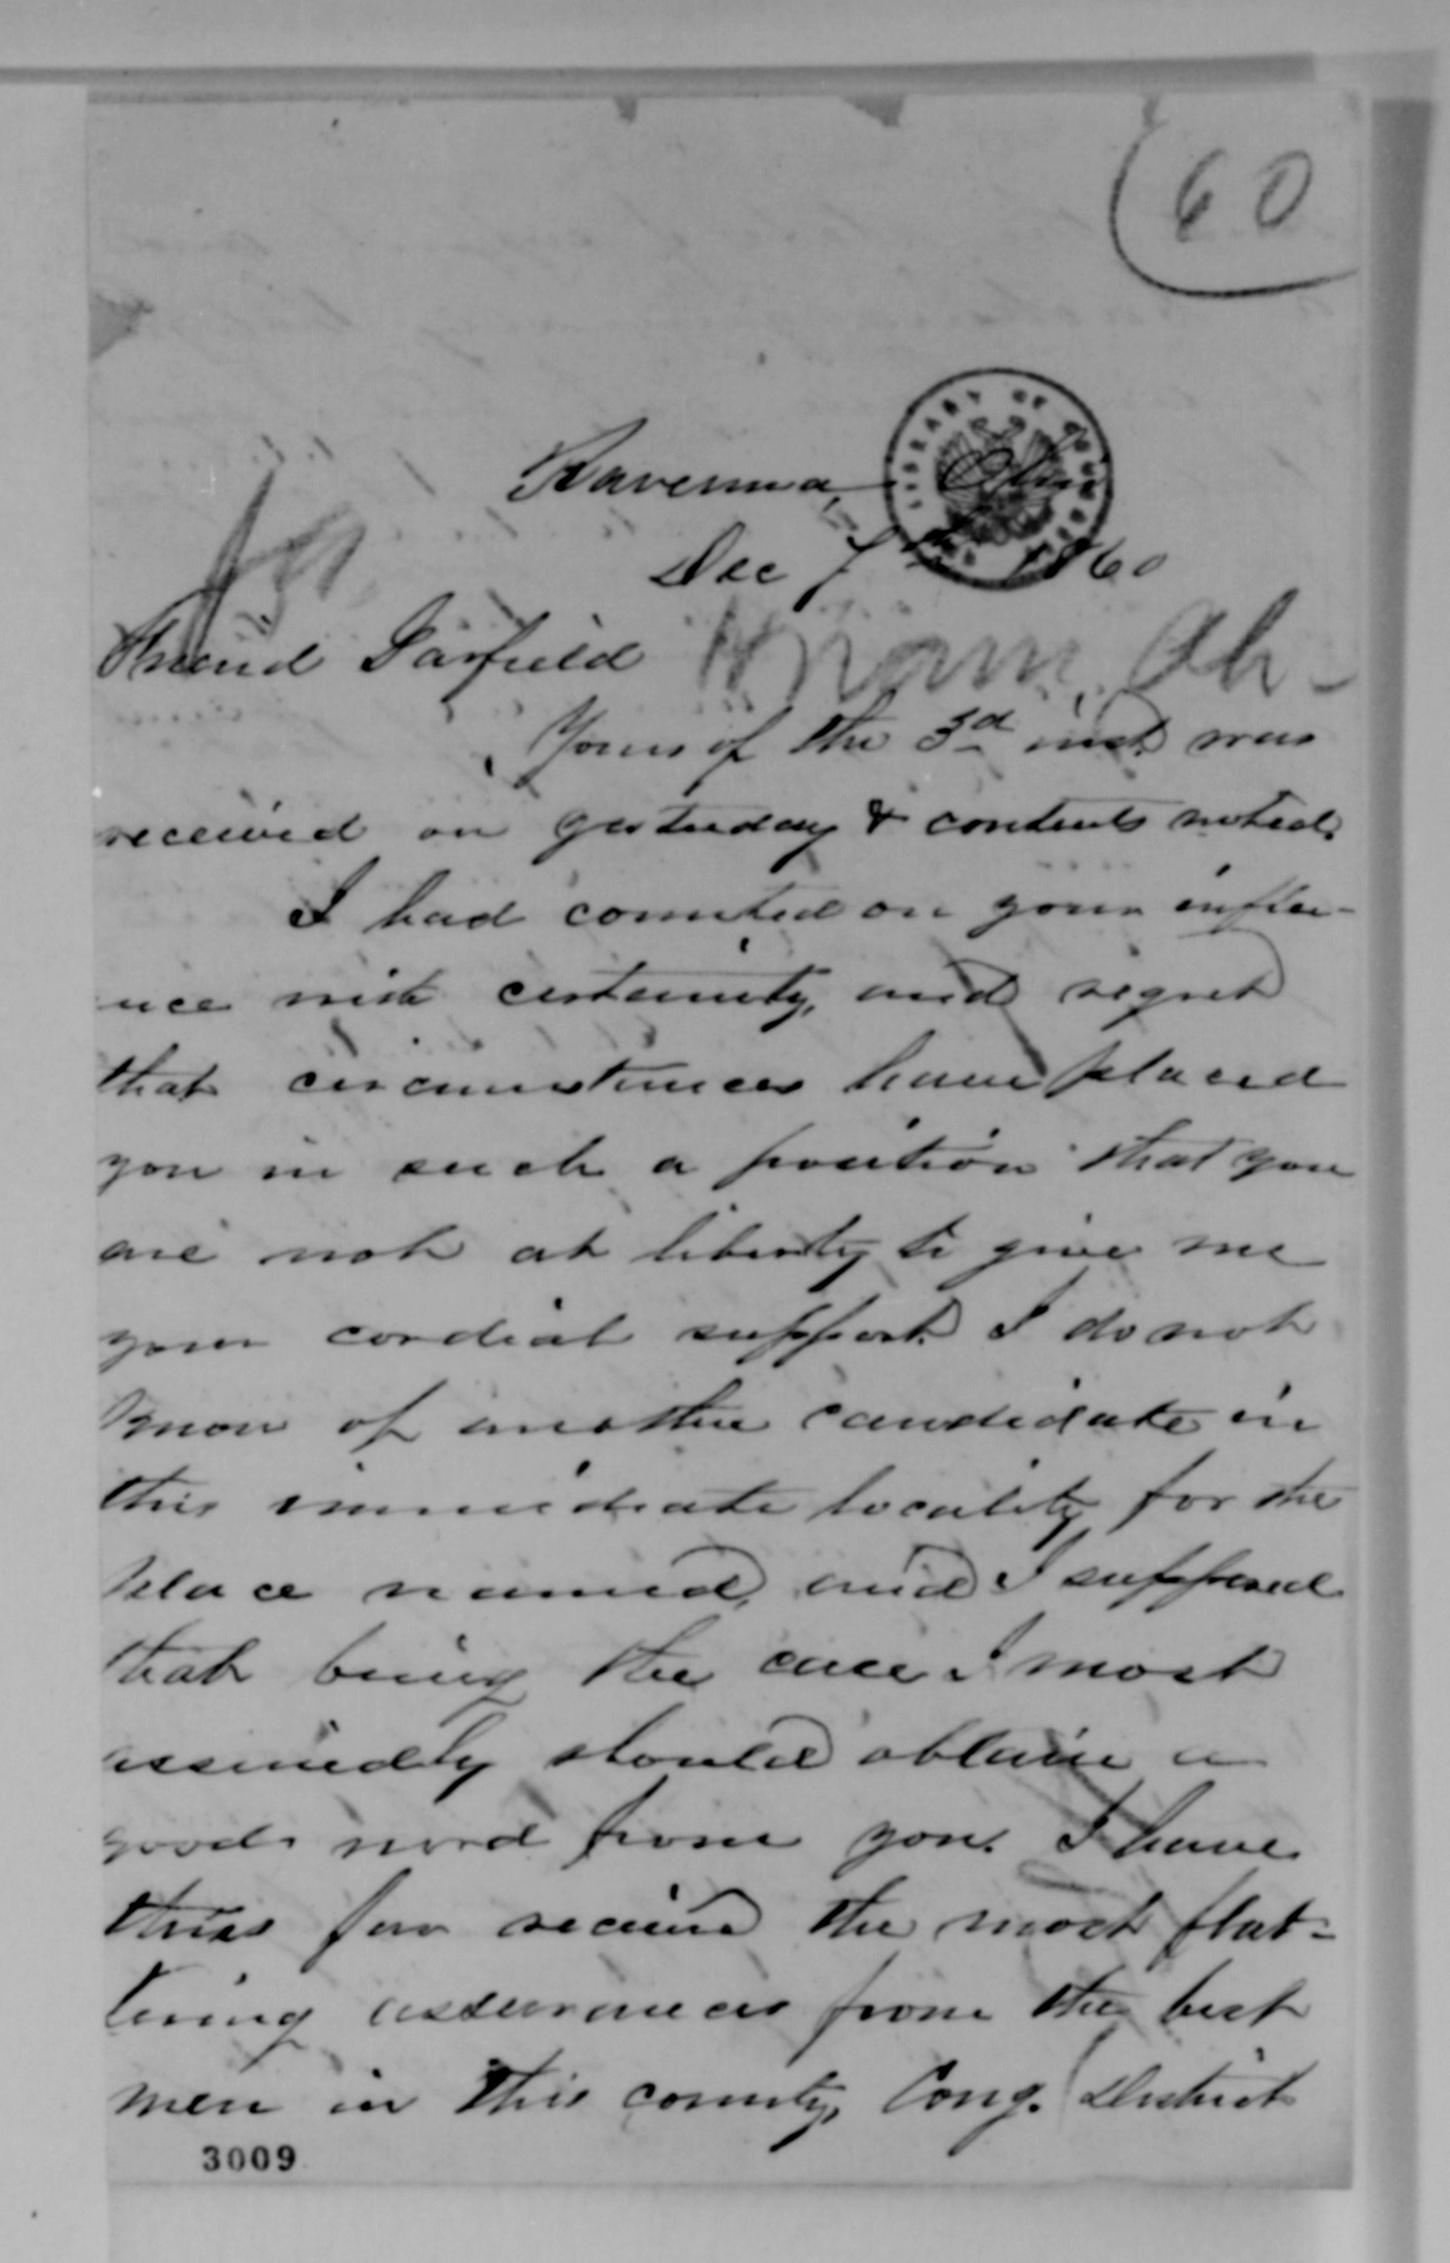 60
LIBRARY OF CONGRESS
Ravenna, Ohio
Dec 7th 1860
Friend Garfield
Hiram, Oh-
Yours of the 3d inst was
received on yesterday & contents noted.
I had counted on your influ-
ence with certainty, and regret
that circumstances have placed
you in such a position that you
are not at liberty to give me
your cordial support. I do not
know of another candidate in
this immediate locality for the
place named, and I supposed
that being the case I most
assuredly should obtain a
good word from you. I have
thus far receivd the most flat-
tering assurances from the best
men in this county, Cong. District
3009